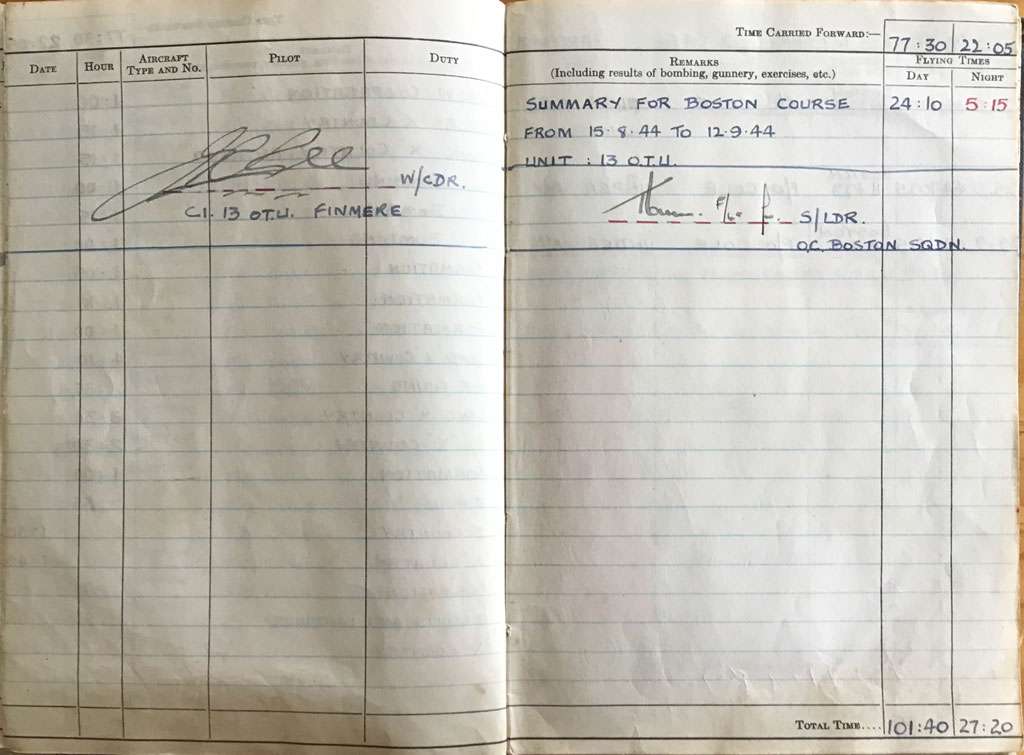 DATE HOUR AIRCRAFT TYPE AND NO. PILOT DUTY
W/CDR.
C.I. 13 O.T.U. FINMERE
TIME CARRIED FORWARD:— 77:30 22:05
REMARKS
(Including results of bombing, gunnery, exercises, etc.)
FLYING TIMES
DAY NIGHT
SUMMARY FOR BOSTON COURSE 24:10 5:15
FROM 15·8·44 TO 12·9·44
UNIT : 13 O.T.U.
S/LDR.
O.C. BOSTON SQDN.
TOTAL TIME.... 101:40 27:20